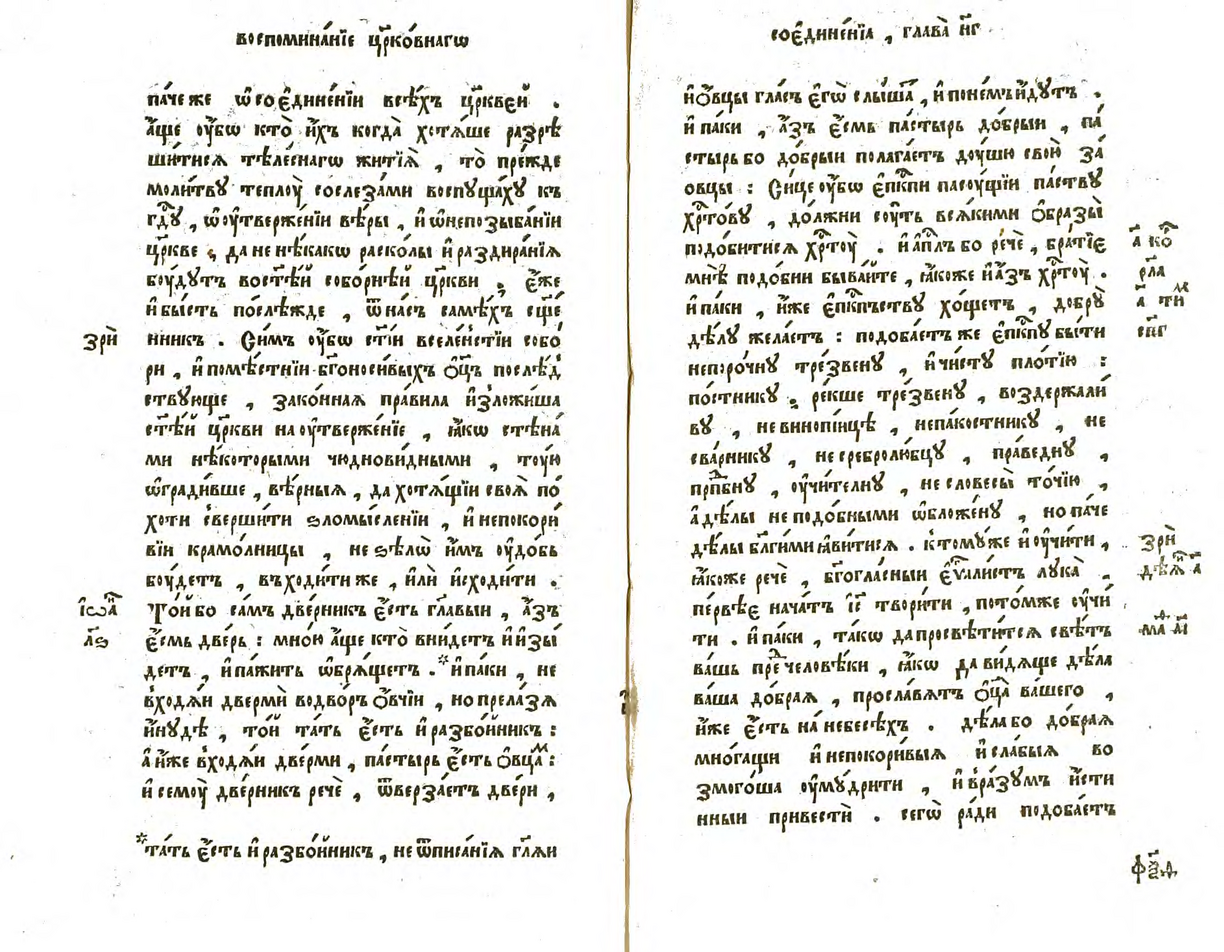 воспомина́нїе цр҃ко́внагѡ
па́че же ѡ҆ соедине́нїи всѣ́хъ цр҃кве́й .
а҆́ще ᲂу҆́бѡ кто̀ и҆́хъ когда̀ хотѧ́ше разрѣ
ши́тисѧ тѣле́снагѡ житїѧ̀ , то̀ пре́жде
моли́твꙋ те́плᲂу со слеза́ми воспꙋща́хꙋ къ
гдⷭ҇ꙋ , ѡ҆ ᲂу҆твержде́нїи вѣ́ры , и҆ ѡ҆ непозыба́нїи
цр҃кве , да не нѣ́какѡ раско́лы и҆ раздира́нїѧ
бᲂу́дꙋтъ во ст҃ѣ́й собо́рнѣй цр҃кви . є҆́же
и҆ бы́сть послѣ́жде , ѿ на́съ самѣ́хъ сщ҃е
нникъ . Си́мъ ᲂу҆́бѡ ст҃і́и вселе́нстїи собо
ри , и҆ помѣ́стнїи бг҃оноси́выхъ ѻ҆ц҃ъ послѣ́д
ствꙋюще , зако́ннаѧ пра́вила и҆зложи́ша
ст҃ѣ́й цр҃кви на ᲂу҆твержде́нїе , ꙗ҆́кѡ стѣна́
ми нѣ́которыми чюднови́дными , тᲂую̀
ѡ҆гради́вше , вѣ́рныѧ , да хотѧ́щїи своѧ̀ по́
хоти сверши́ти ѕломы́сленїи , и҆ непокори́
вїи крамо́лницы , не ѕѣлѡ̀ и҆̀мъ ᲂу҆до́бь
бᲂу́детъ , въходи́ти же , и҆лѝ и҆сходи́ти .
То́й бо са́мъ две́рникъ є҆́сть гла́выи , а҆́зъ
є҆́смь две́рь : мно́ю а҆́ще кто̀ вни́детъ и҆ и҆зы́
детъ , и҆ па́жить ѡ҆брѧ́щетъ . * и҆ па́ки , не
входѧ́и двермѝ во дво́ръ ѻ҆́вчїи , но прела́зѧ
и҆нꙋ́дѣ , то́й та́ть є҆́сть и҆ разбо́йникъ :
а҆ и҆́же входѧ́и две́рми , па́стырь є҆́сть ѻ҆вца́мⷨ :
и҆ семᲂу̀ две́рникъ речѐ , ѿверза́етъ две́ри ,
* та́ть є҆́сть и҆ разбо́йникъ , не ѿ писа́нїѧ гл҃ѧи
зрѝ
і҆ѡаⷩ҇
л҃ѕ
соедине́нїѧ , глава̀ н҃г
и҆ ѻ҆́вцы гла́съ є҆гѡ̀ слы́шаⷮ , и҆ по не́мъ и҆́дꙋтъ .
и҆ па́ки , а҆́зъ є҆́смь па́стырь до́брыи , па́
стырь бо до́брыи полага́етъ дᲂу́шю свою̀ за́
овцы : Си́це ᲂу҆́бѡ є҆пⷭ҇кпи пасᲂу́щїи па́ствꙋ
хрⷭ҇то́вꙋ , до́лжни сᲂу́ть всѧ́кими ѻ҆́бразы̀
подо́битисѧ хрⷭ҇тᲂу̀ . и҆ а҆пⷭ҇лъ бо речѐ , бра́тїе
мнѣ̀ подо́бни быва́йте , ꙗ҆́коже и҆ а҆́зъ хрⷭ҇тᲂу̀ .
и҆ па́ки , и҆́же є҆пⷭ҇кпъствꙋ хо́щетъ , добрꙋ̀
дѣ́лꙋ жела́етъ : подоба́етъ же є҆пⷭ҇кпꙋ бы́ти
непоро́чнꙋ тре́звенꙋ , и҆ чи́стꙋ пло́тїю :
по́стникꙋ , ре́кше тре́звенꙋ , воздержали́
вꙋ , не винопі́ицѣ , непа́костникꙋ , не
сва́рникꙋ , не сребролю́бцꙋ , пра́веднꙋ ,
прпⷣбнꙋ , ᲂу҆чи́телнꙋ , не словесы̀ то́чїю ,
а҆ дѣ́лы неподо́бными ѡ҆бложе́нꙋ , но па́че
дѣ́лы бл҃ги́ми ꙗ҆ви́тисѧ . к томꙋ́ же и҆ ᲂу҆чи́ти ,
ꙗ҆́коже речѐ , бг҃огла́сныи є҆ѵⷢ҇али́стъ лꙋка̀ .
пе́рвѣе нача́тъ і҆с҃ твори́ти , пото́мже ᲂу҆чи́
ти . и҆ па́ки , та́кѡ да просвѣти́тсѧ свѣ́тъ
ва́шь преⷣ человѣ́ки , ꙗ҆́кѡ да ви́дѧще дѣ́ла
ва́ша до́браѧ , просла́вѧтъ ѻ҆ц҃а̀ ва́шего ,
и҆́же є҆́сть на небесѣ́хъ . дѣла́ бо до́браѧ
мно́гащи и҆ непокори́выѧ и҆ сла́быѧ во
змого́ша ᲂу҆мꙋдри́ти , и҆ в ра́зꙋмъ и҆́сти
нныи привестѝ . сегѡ̀ ра́ди подоба́етъ
а҃ коⷬ҇
рл҃а
а҃ тиⷨ
сп҃г
зрѝ
дѣѧⷩ҇ а҃
маⷴ а҃і